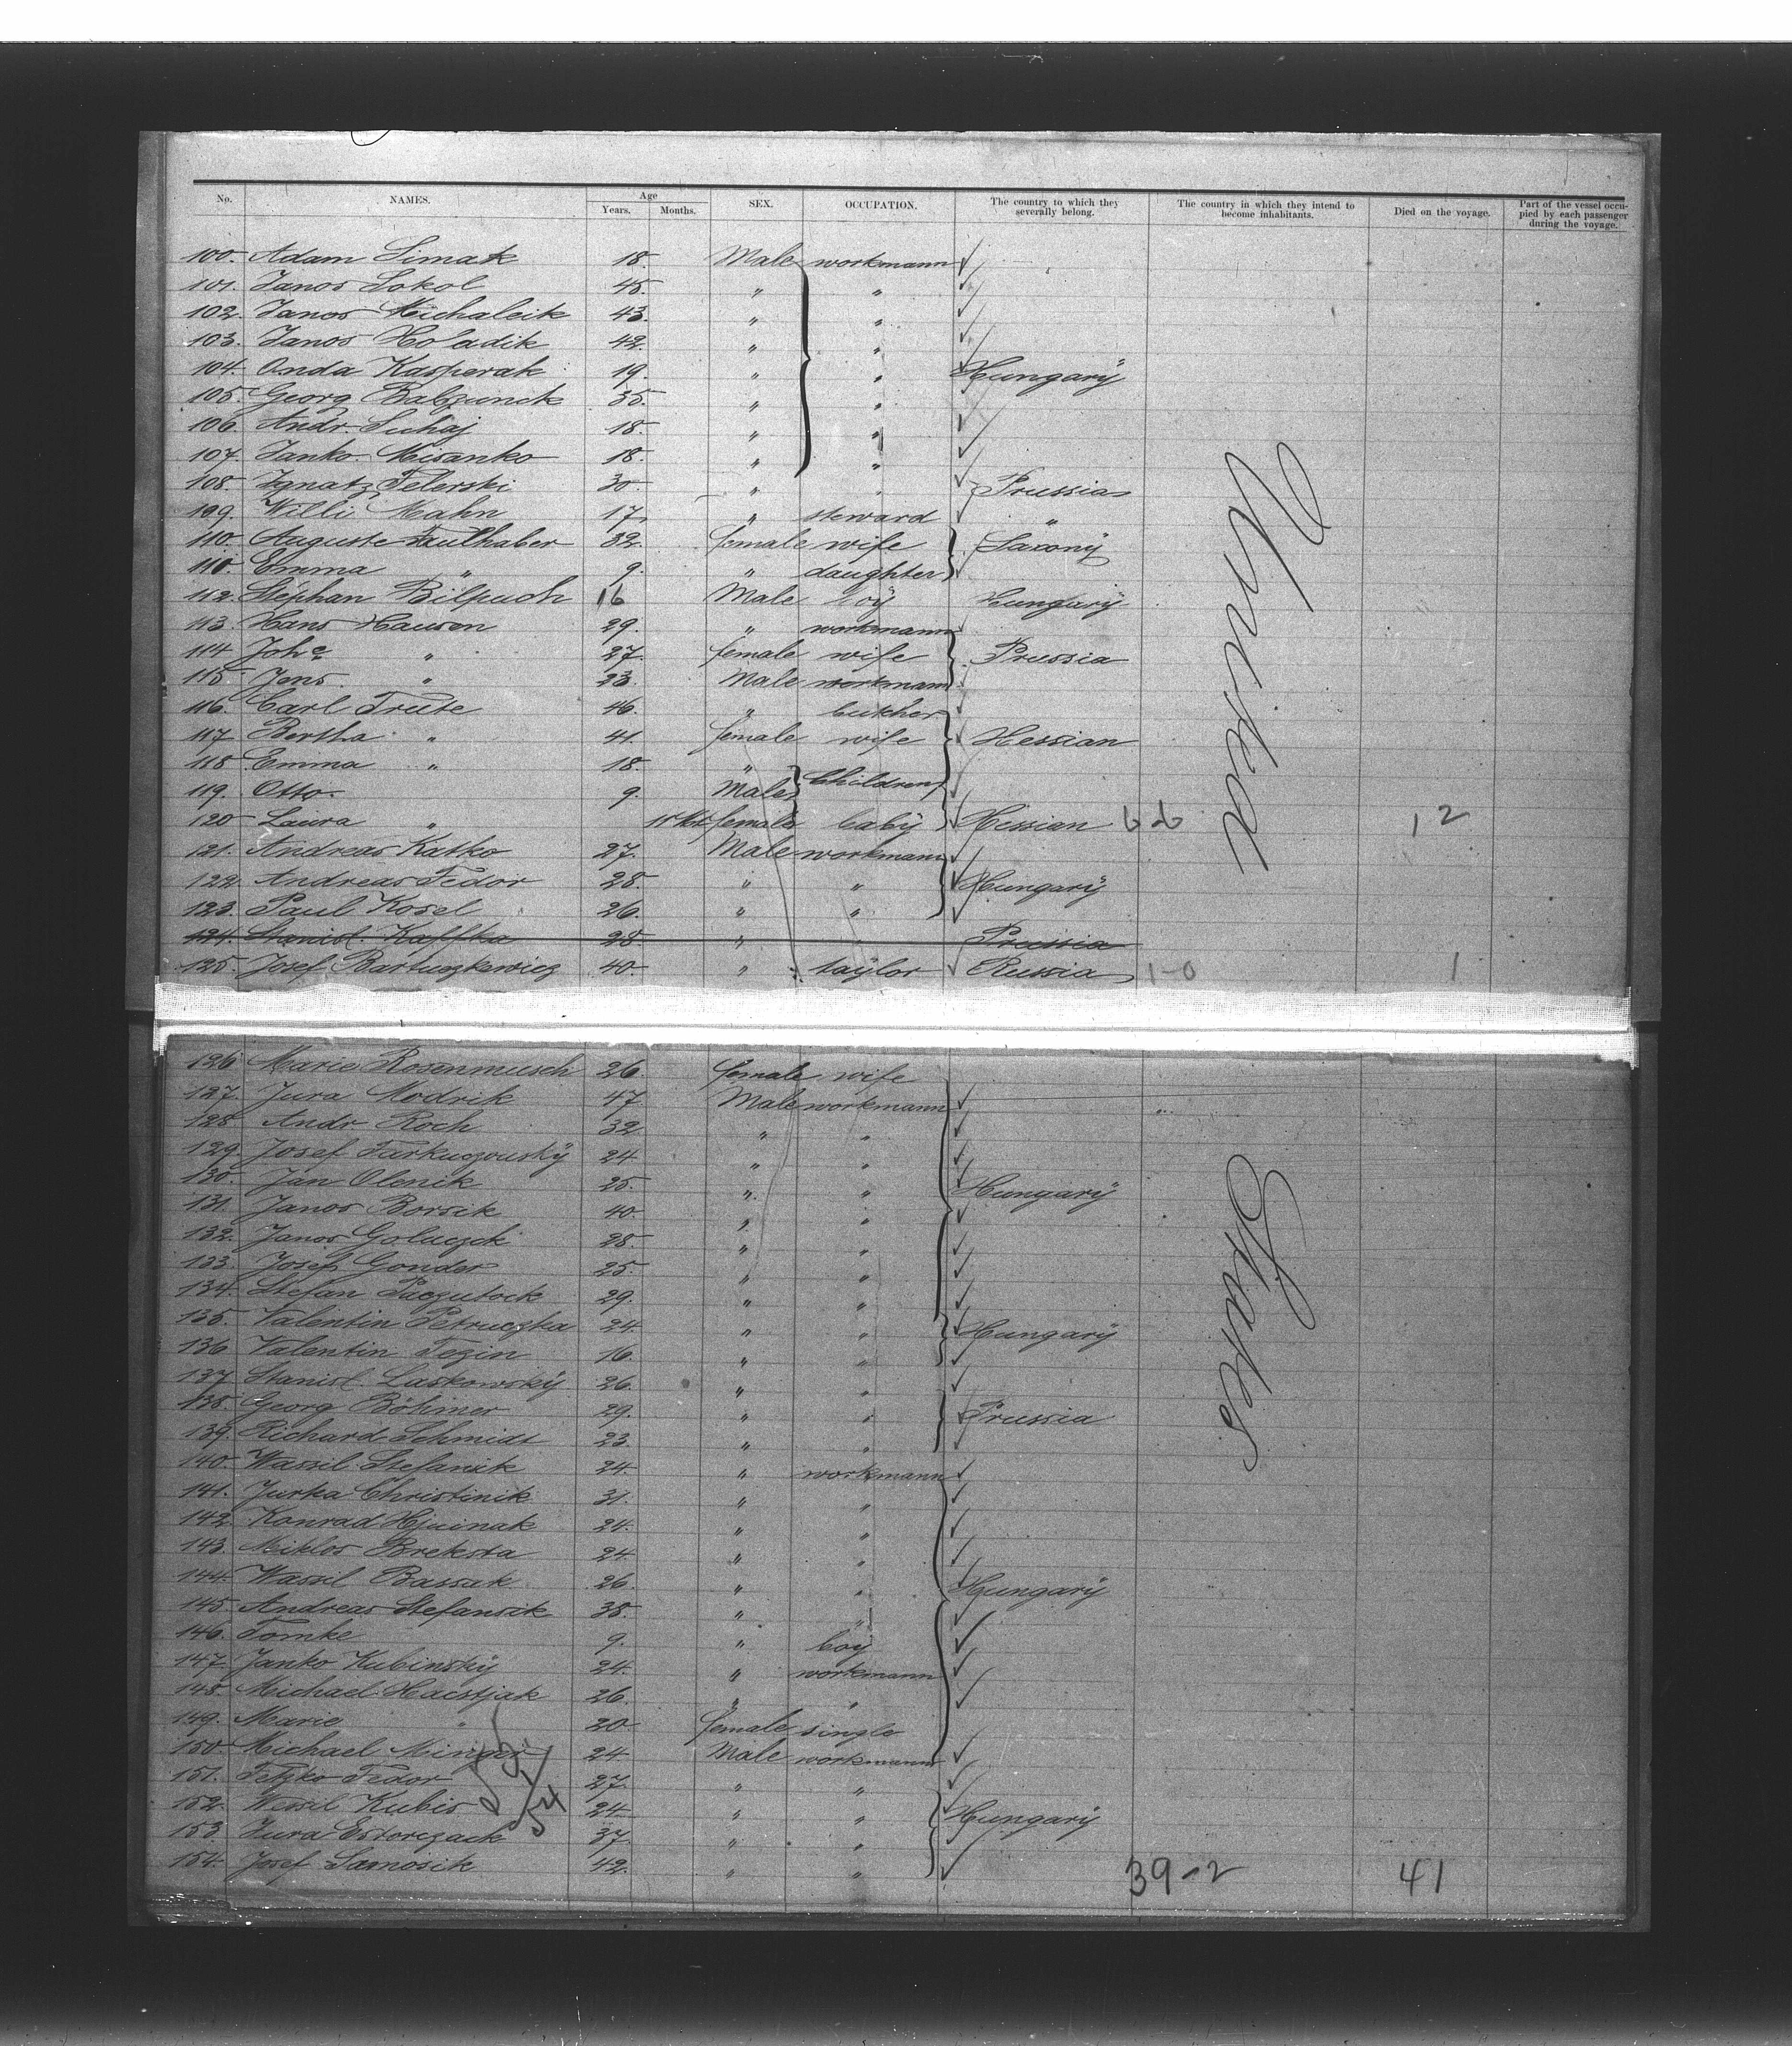 No. NAMES. Age Years. Months. SEX. OCCUPATION. The country to which they severally belong. The country in which they intend to become inhabitants. Died on the voyage. Part of the vessel occupied by each passenger during the voyage.
100. Adam Simak 18. Male workmann
101. Janos Sokol 45. " "
102. Janos Michalcik 43. " "
103. Janos Holadik 42. " "
104. Onda Kasperak 19. " " Hungarÿ
105. Georg Balzunck 35. " "
106. Andr. Suhaj 18. " "
107. Janko Misanko 18. " "
108. Ignatz Felerski 30. " " Prussia
109. Willi Mahn 17. " steward "
110. Auguste Faulhaber 32. female wife Saxonÿ
110. Emma " 9. " daughter
112. Stephan Bilpuch 16 Male boÿ Hungarÿ
113. Hans Hansen 29. " workmann
114. Joh " 27. female wife Prussia
115. Jens " 23. Male workmann
116. Carl Trute 46. " butcher
117 Bertha " 41. female wife Hessian
118 Emma " 18. " Children
119. Otto 9. Male
120 Laura " female babÿ Hessian 6-6 12
121. Andreas Katko 27. Male workmann
122. Andreas Fedor 28. " " Hungarÿ
123. Paul Kosel 26. " "
124. Stanisl. Kaffka 28 " " Prussia
125. Josef Bartuczkewicz 40. " taÿlor Russia 1-0 1
America
126 Marie Rosenmusch 26. female wife
127. Jura Modrik 47 Male workmann
128. Andr. Roch 32 " "
129. Josef Tarkuczouskÿ 24 " "
130. Jan Olenik 25. " " Hungarÿ
131. Janos Borsik 40. " "
132. Janos Goluczck 28. " "
133. Josef Gonder 25. " "
134. Stefan Puczutock 29. " "
135. Valentin Petruczka 24. " " Hungarÿ
136 Valentin Tezin 16. " "
137. Stanisl. Laskowskÿ 26. " "
138. Georg Böhmer 29. " " Prussia
139. Richard Schmidt 23. " "
140. Wassil Stefansik 24. " workmann
141. Jurka Christinik 31. " "
142. Konrad 24. " "
143. Miklos Breksta 24. " "
144. Wassil Bassak 26. " " Hungarÿ
145. Andreas Stefansik 38. " "
146. Tomke 9. " boÿ
147. Janko Kubinskÿ 24. " workmann
148. Michael Hacstjak 26. " "
149. Marie " 20 female single
150. Michael Minger 24 Male workmann
151. Fetzko Fedor 27. " "
152. Wessil Kubis 24. " " Hungarÿ
153. Jura Estorczack 37. " "
154. Josef Samosik 42. " " 39-2 41
States